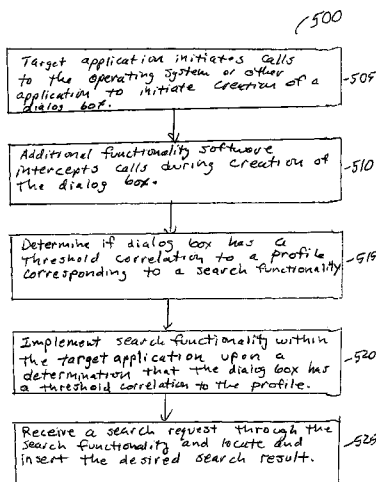 500
Target application initiates calls
to the operating system or other
application to initiate creation of a
dialog box.
505
Additional functionality software
intercepts calls during creation of
the dialog box.
510
Determine if dialog box has a
threshold correlation to a profile
corresponding to a search functionality
515
Implement search functionality within
the target application upon a
determination that the dialog box has
a threshold correlation to the profile.
520
Receive a search request through the
search functionality and locate and
insert the desired search result.
525